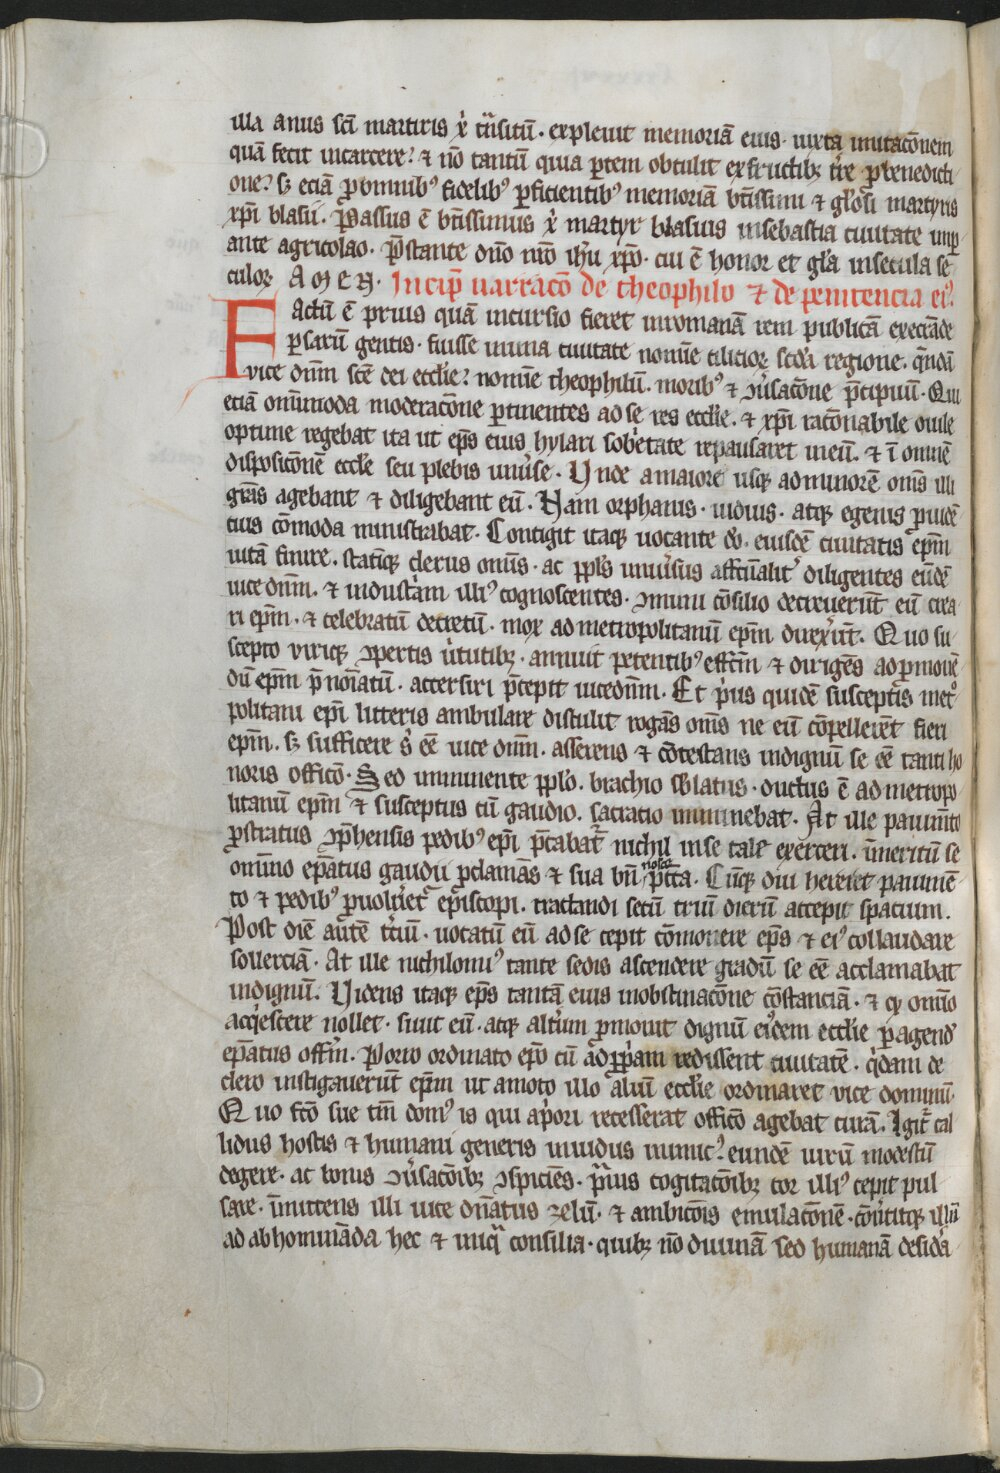 illa anus sc̄i martiris x̓ tͣ̄nsitū · expleuit memoriā eius · iuxta inuitac̄onem
quā fecit incarcere? ⁊ nō tantū quia ꝑtem obtulit exfructibꝫ tr̄e ꝓ benedicti
one? sꝫ eciā ꝓ omnibꝰ fidelibꝰ ꝑficientibꝰ memoriā bt̄issimi ⁊ gl̓osi martyris
xp̄i blasii · Passus ē bt̄issimus x̓ martyr blasius insebastia ciuitate imꝑ
ante agricolao · p̄stante dn̄o nr̄o ih̄u xp̄o · cui ē honor et gl̓a insecula se
culoꝝ AMEN · Incip̄ narrac̄o de theophilo ⁊ de penitencia eiꝰ.
Factū ē prius quā incursio fieret inromanā rem publicā execrāde
ꝑsarū gentis · fuisse inuna ciuitate nomīe cilicioꝝ sc̄d̓a regione · q̄ndā
vice dn̄m sc̄e dei eccl̓ie? nomīe theophilū · moribꝰ ⁊ ꝯu̓sac̄one p̄cipuū · Qui
eciā omnīmoda moderac̄one ꝑtinentes ad se res eccl̓ie · ⁊ xp̄i rac̄onabile ouile
optime regebat ita ut ep̄s eius hylari sob̓etate repausaret ineū · ⁊ ī omnē
disposic̄onē eccl̓e seu plebis uniu̓se · Unde amaiore usqꝫ adminorē om̄s illi
gr̄as agebant ⁊ diligebant eū · Nam orphanis · uiduis · atqꝫ egenis ꝓuidē
cius cōmoda ministrabat · Contigit itaqꝫ uocante d̓o · eiusdē ciuitatis ep̄m
uitā finire · statīqꝫ clerus om̄is · ac ppl̓s uniu̓sus affcūalit̓ diligentes eūdē
uice dn̄m · ⁊ industͣ̄m illiꝰ cognoscentes · ꝯmuni cōsilio decreuerūt eū crea
ri ep̄m · ⁊ celebratū decretū · mox ad metropolitanū ep̄m direx̓ūt · Quo su
scepto virisqꝫ ꝯpertis u̓tutibꝫ · annuit petentibꝰ effcm̄ ⁊ dirigēs ad ꝓmouē
dū ep̄m p̄ noīatū · accersiri p̄cepit uicedn̄m · Et p̓us quidē susceptis metͦ
politani ep̄i litteris ambulare distulit rogās om̄s ne eū cōpellerēt fieri
ep̄m · sꝫ sufficere s̓ ēē uice dn̄m · asserens ⁊ cōtestans indignū se ēē tanti ho
noris officō · Sed imminente ppl̓o · brachio sb̓latus · ductus ē ad metropo
litanū ep̄m ⁊ susceptus cū gaudio · sacracio imminebat · At ille pauim̄to
ꝓstratus ꝯp̄hensis pedibꝰ ep̄i p̄cabat᷑ nichil inse tale exerceri · īmeritū se
om̄ino ep̄atus gaudii ꝓclamās ⁊ sua bn̄ nosce pc̄cā · Cūqꝫ diu hereret pauimē
to ⁊ pedibꝰ ꝓuolu̓et᷑ episcopi · tractandi secū triū dierū accepit spacium ·
Post diē autē tc̓iū · uocatū eū ad se cepit cōmonere ep̄s ⁊ eiꝰ collaudare
sollerciā · At ille nichilominꝰ tante sedis ascendere gradū se ēē acclamabat
indignū · Uidens itaqꝫ ep̄s tantā eius inobstinac̄one cōstanciā · ⁊ qꝫ om̄īo
acq̓escere nollet · siuit eū · atqꝫ alt̓um ꝓmouit dignū eidem eccl̓ie ꝑagend̓
ep̄atus offm̄ · Porro ordinato ep̄o cū ad ꝓp̓am redissent ciuitatē · q̓dam de
clero instigauerūt ep̄m ut amoto illo aliū eccl̓ie ordinaret vice dominū ·
Quo fc̄o sue tm̄ domꝰ is qui ap̓ori recesserat officō agebat curā · Igit᷑ cal
lidus hostis ⁊ humani generis inuidus inimicꝰ? eundē uirū modestū
degere · ac bonis ꝯu̓sac̄oibꝫ ꝯspiciēs · p̓uis cogitac̄oibꝫ cor illiꝰ cepit pul
sare · īmittens illi uice dn̄atus zelū · ⁊ ambic̄ois emulac̄onē · cōu̓titqꝫ illū
ad abhomināda hec ⁊ iniqͣ consilia · quibꝫ nō diuinā sed humanā desid̓a